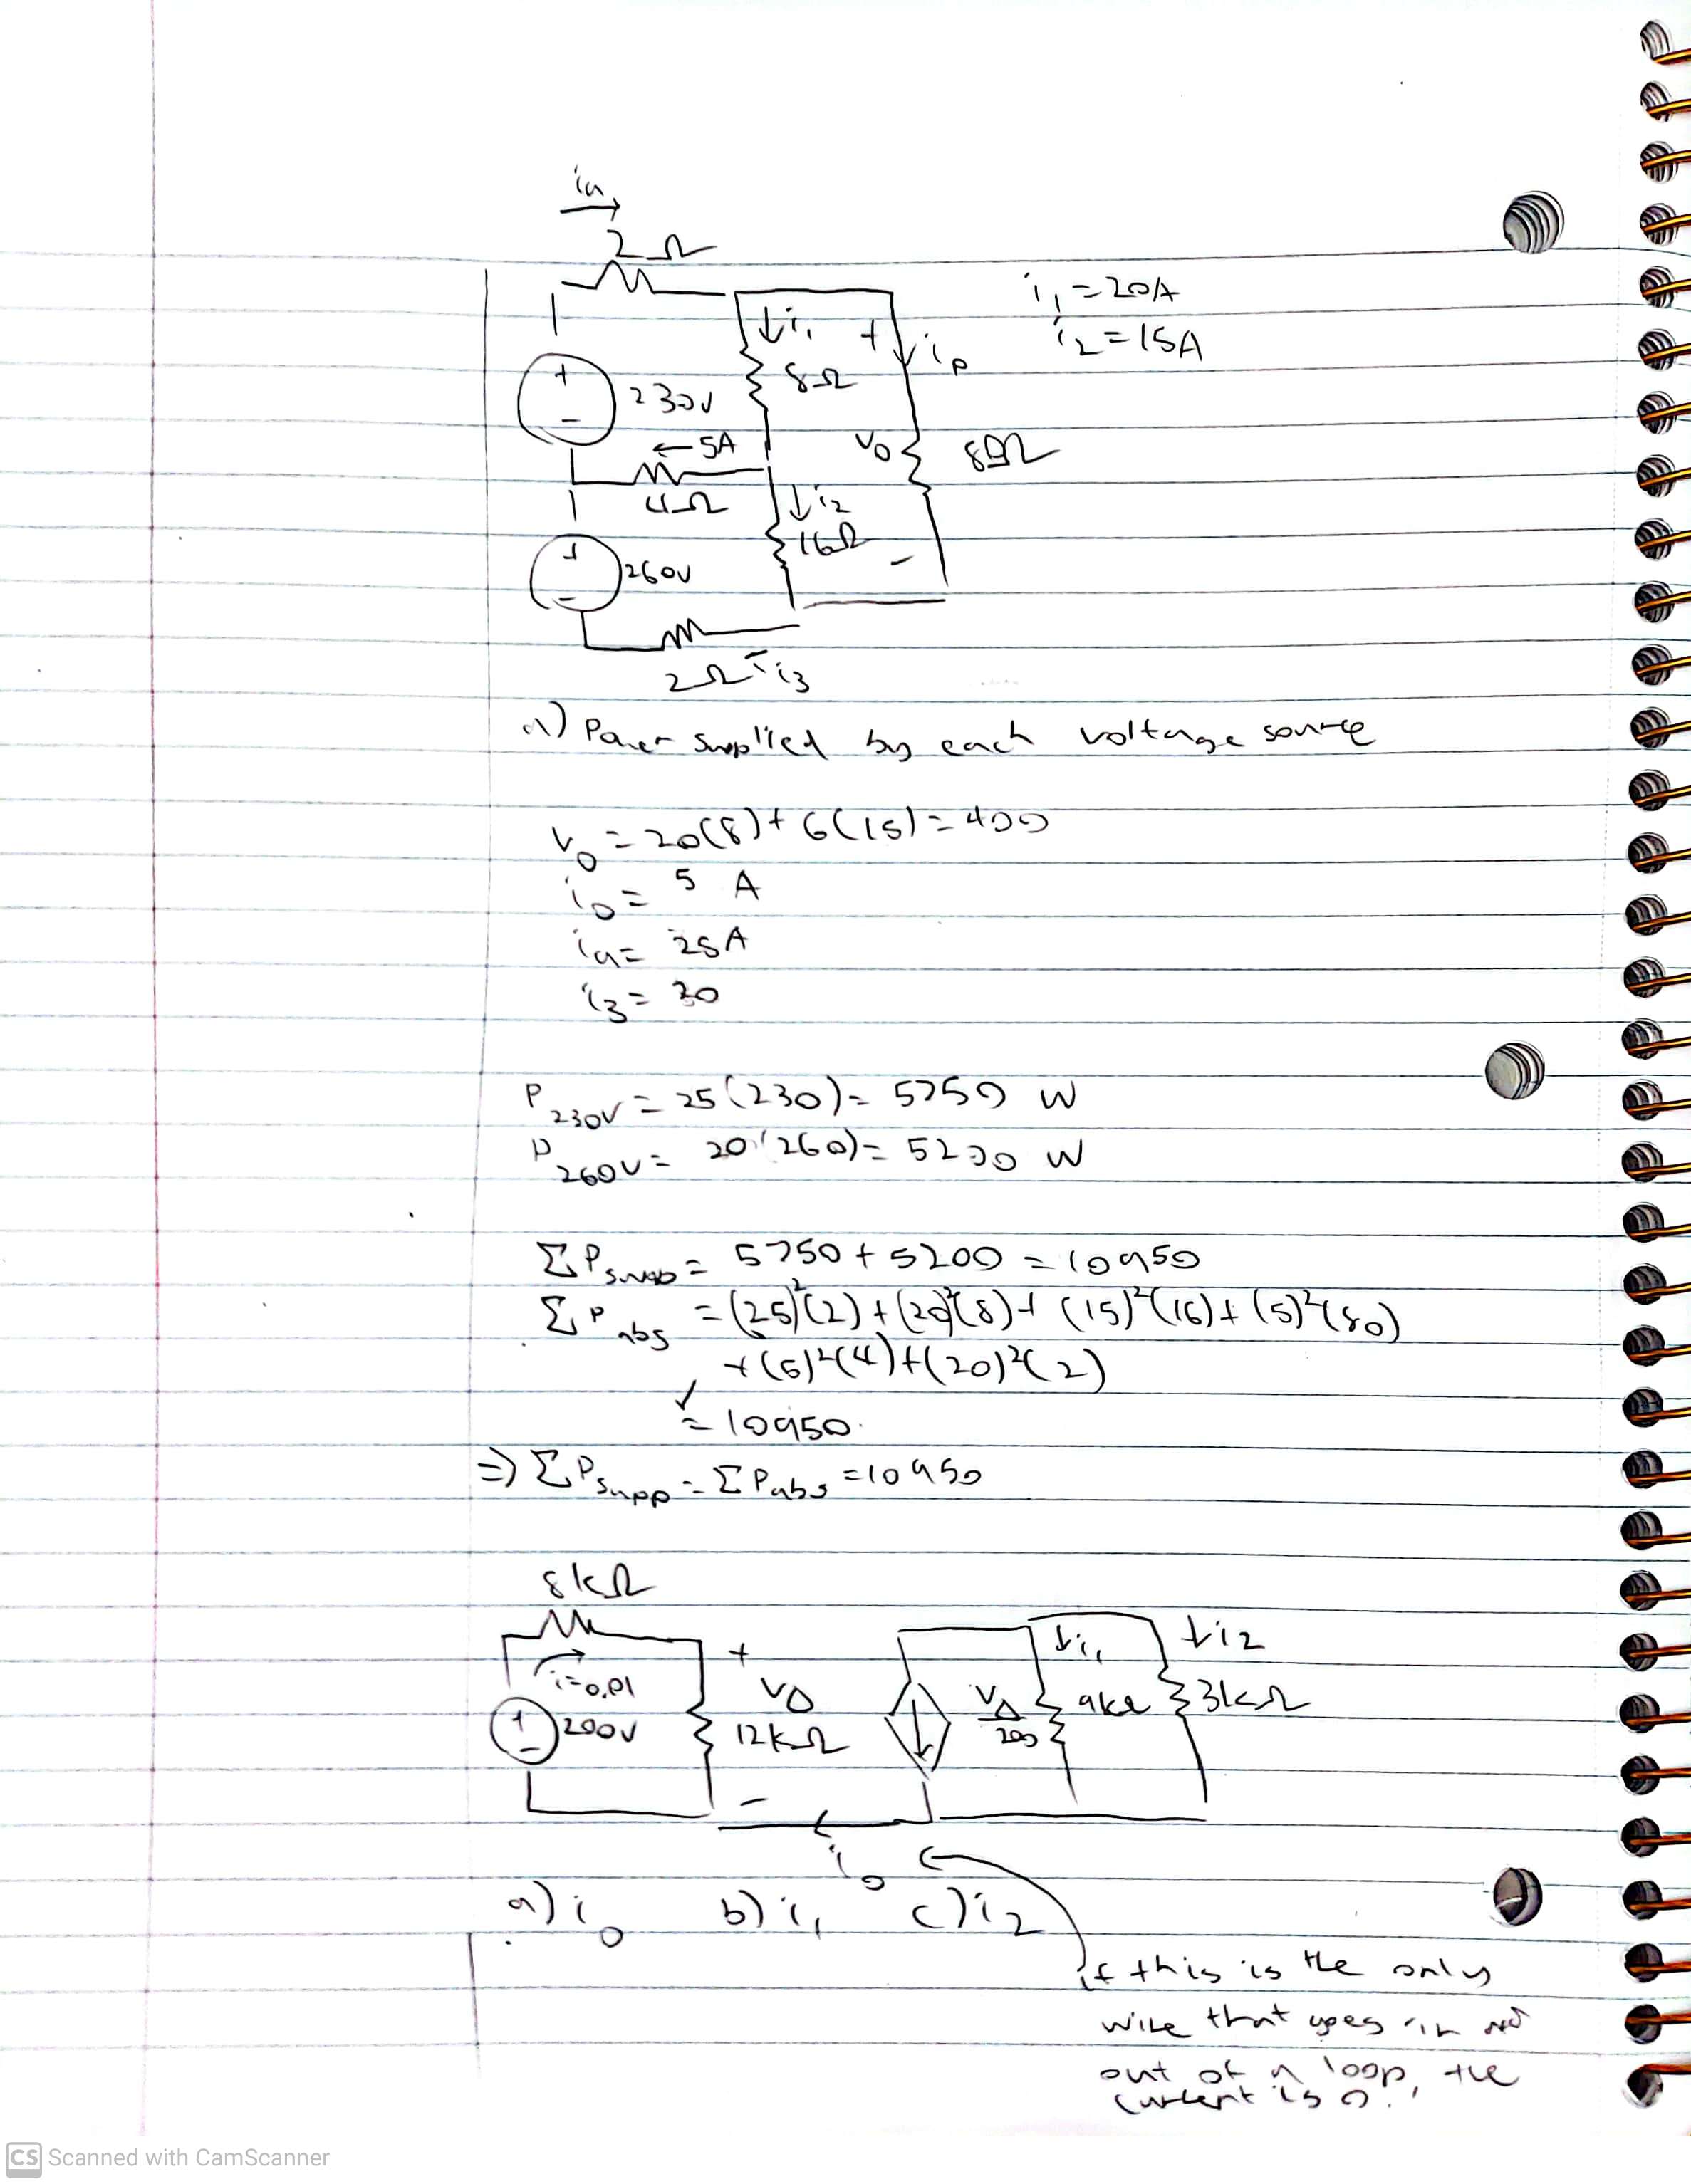 ia
2Ω
i₁ = 20A
i₂ = 15A
↓i₁
+
ip
+
230V
8Ω
−
←5A
vo
80Ω
4Ω
↓i₂
+
260V
16Ω
−
−
2Ω
←i₃
a) Power supplied by each voltage source
vo = 20(8) + 6(15) = 400
io = 5 A
ia = 25A
i₃ = 20
P230V = 25(230) = 5750 W
P260V = 20(260) = 5200 W
ΣPsupp = 5750 + 5200 = 10950
ΣPabs = (25)²(2) + (20)²(8) + (15)²(16) + (5)²(80)
+ (5)²(4) + (20)²(2)
✓= 10950
⇒ ΣPsupp = ΣPabs = 10950
8kΩ
↓i₁
↓i₂
+
i=0.01
vo
vΔ/200
9kΩ
3kΩ
+
200V
−
12kΩ
−
io
a) io b) i₁ c) i₂
if this is the only
wire that goes in and
out of a loop, the
current is 0.
CS Scanned with CamScanner